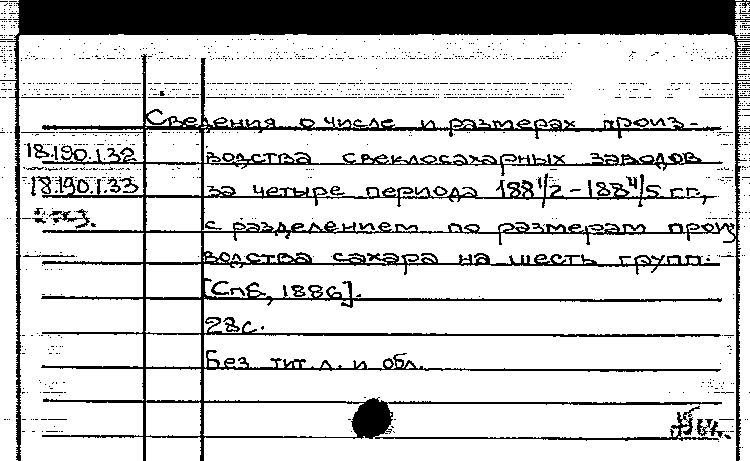 Сведения о числе и размерах произ-
18.190.1.32 водства свеклосахарных заводов
18.190.1.33 за четыре периода 188 1/2 - 188 4/5 г.г.,
с разделением по размерам произ
водства сахара на шесть групп.
[Спб, 1886].
28с.
Без тит. л. и обл.